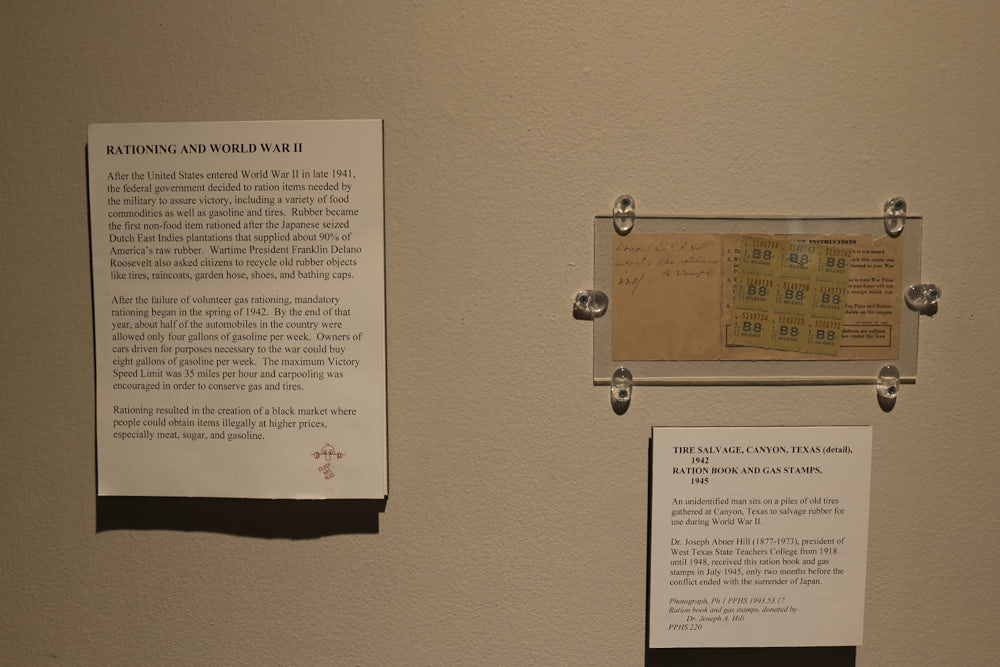 RATIONING AND WORLD WAR II
After the United States entered World War II in late 1941,
the federal government decided to ration items needed by
the military to assure victory, including a variety of food
commodities as well as gasoline and tires. Rubber became
the first non-food item rationed after the Japanese seized
Dutch East Indies plantations that supplied about 90% of
America's raw rubber. Wartime President Franklin Delano
Roosevelt also asked citizens to recycle old rubber objects
like tires, raincoats, garden hose, shoes, and bathing caps.
After the failure of volunteer gas rationing, mandatory
rationing began in the spring of 1942. By the end of that
year, about half of the automobiles in the country were
allowed only four gallons of gasoline per week. Owners of
cars driven for purposes necessary to the war could buy
eight gallons of gasoline per week. The maximum Victory
Speed Limit was 35 miles per hour and carpooling was
encouraged in order to conserve gas and tires.
Rationing resulted in the creation of a black market where
people could obtain items illegally at higher prices,
especially meat, sugar, and gasoline.
KILROY
WAS
HERE
INSTRUCTIONS
220/
5149744
B8
MILEAGE
B8
MILEAGE
B8
5149739
B8
MILEAGE
5149738
B8
MILEAGE
5149737
B8
MILEAGE
5149734
B8
MILEAGE
5149733
B8
MILEAGE
5149732
B8
MILEAGE
TIRE SALVAGE, CANYON, TEXAS (detail),
1942
RATION BOOK AND GAS STAMPS,
1945
An unidentified man sits on a piles of old tires
gathered at Canyon, Texas to salvage rubber for
use during World War II.
Dr. Joseph Abner Hill (1877-1973), president of
West Texas State Teachers College from 1918
until 1948, received this ration book and gas
stamps in July 1945, only two months before the
conflict ended with the surrender of Japan.
Photograph, Ph 1 PPHS 1993.53.17
Ration book and gas stamps, donated by
Dr. Joseph A. Hill
PPHS 220